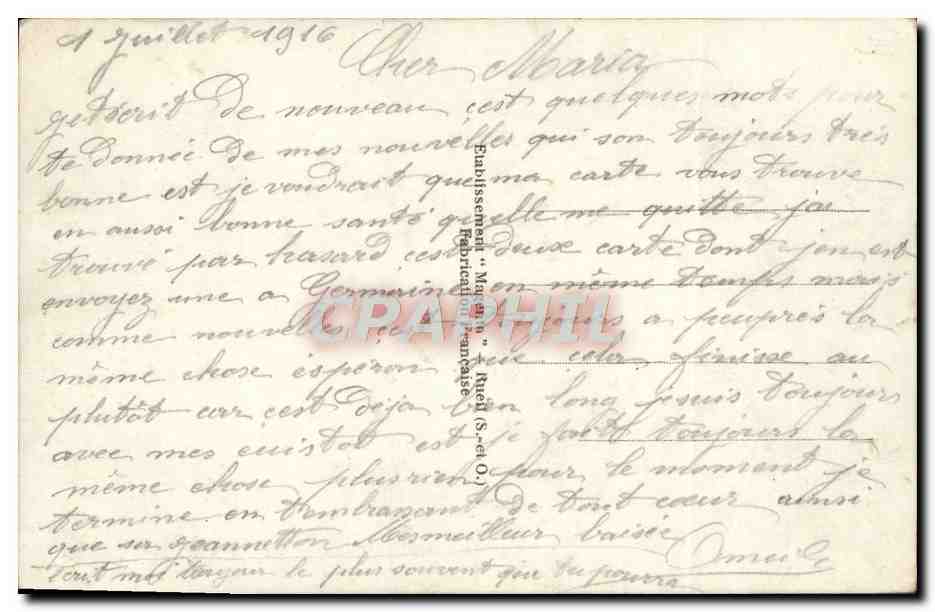 1 Juillet 1916
Cher Maria
getscrit de nouveau cest quelques mots pour
te donnée de mes nouvelles qui son toujours très
bonne est je voudrait que ma carte vous trouve
en aussi bonne santé quelle me quitte jai
trouvé par hasard cest deux carte dont jen est
envoyez une a Germaine en même temps mais
comme nouvelles toujours a peuprès la
même chose espéron que cela finisse au
plutôt car cest déja bien long jesuis toujours
avec mes cuistot est je fait toujours la
même chose plusrien pour le moment je
termine en tembrassant de tout cœur ainsi
que sa jeannetton Mesmeilleur baiser
écrit moi toujour le plus souvent que tu pourra
Etablissement " Magenta " + Rueil (S.-et O.)
Fabrication Française
CPAPHIL